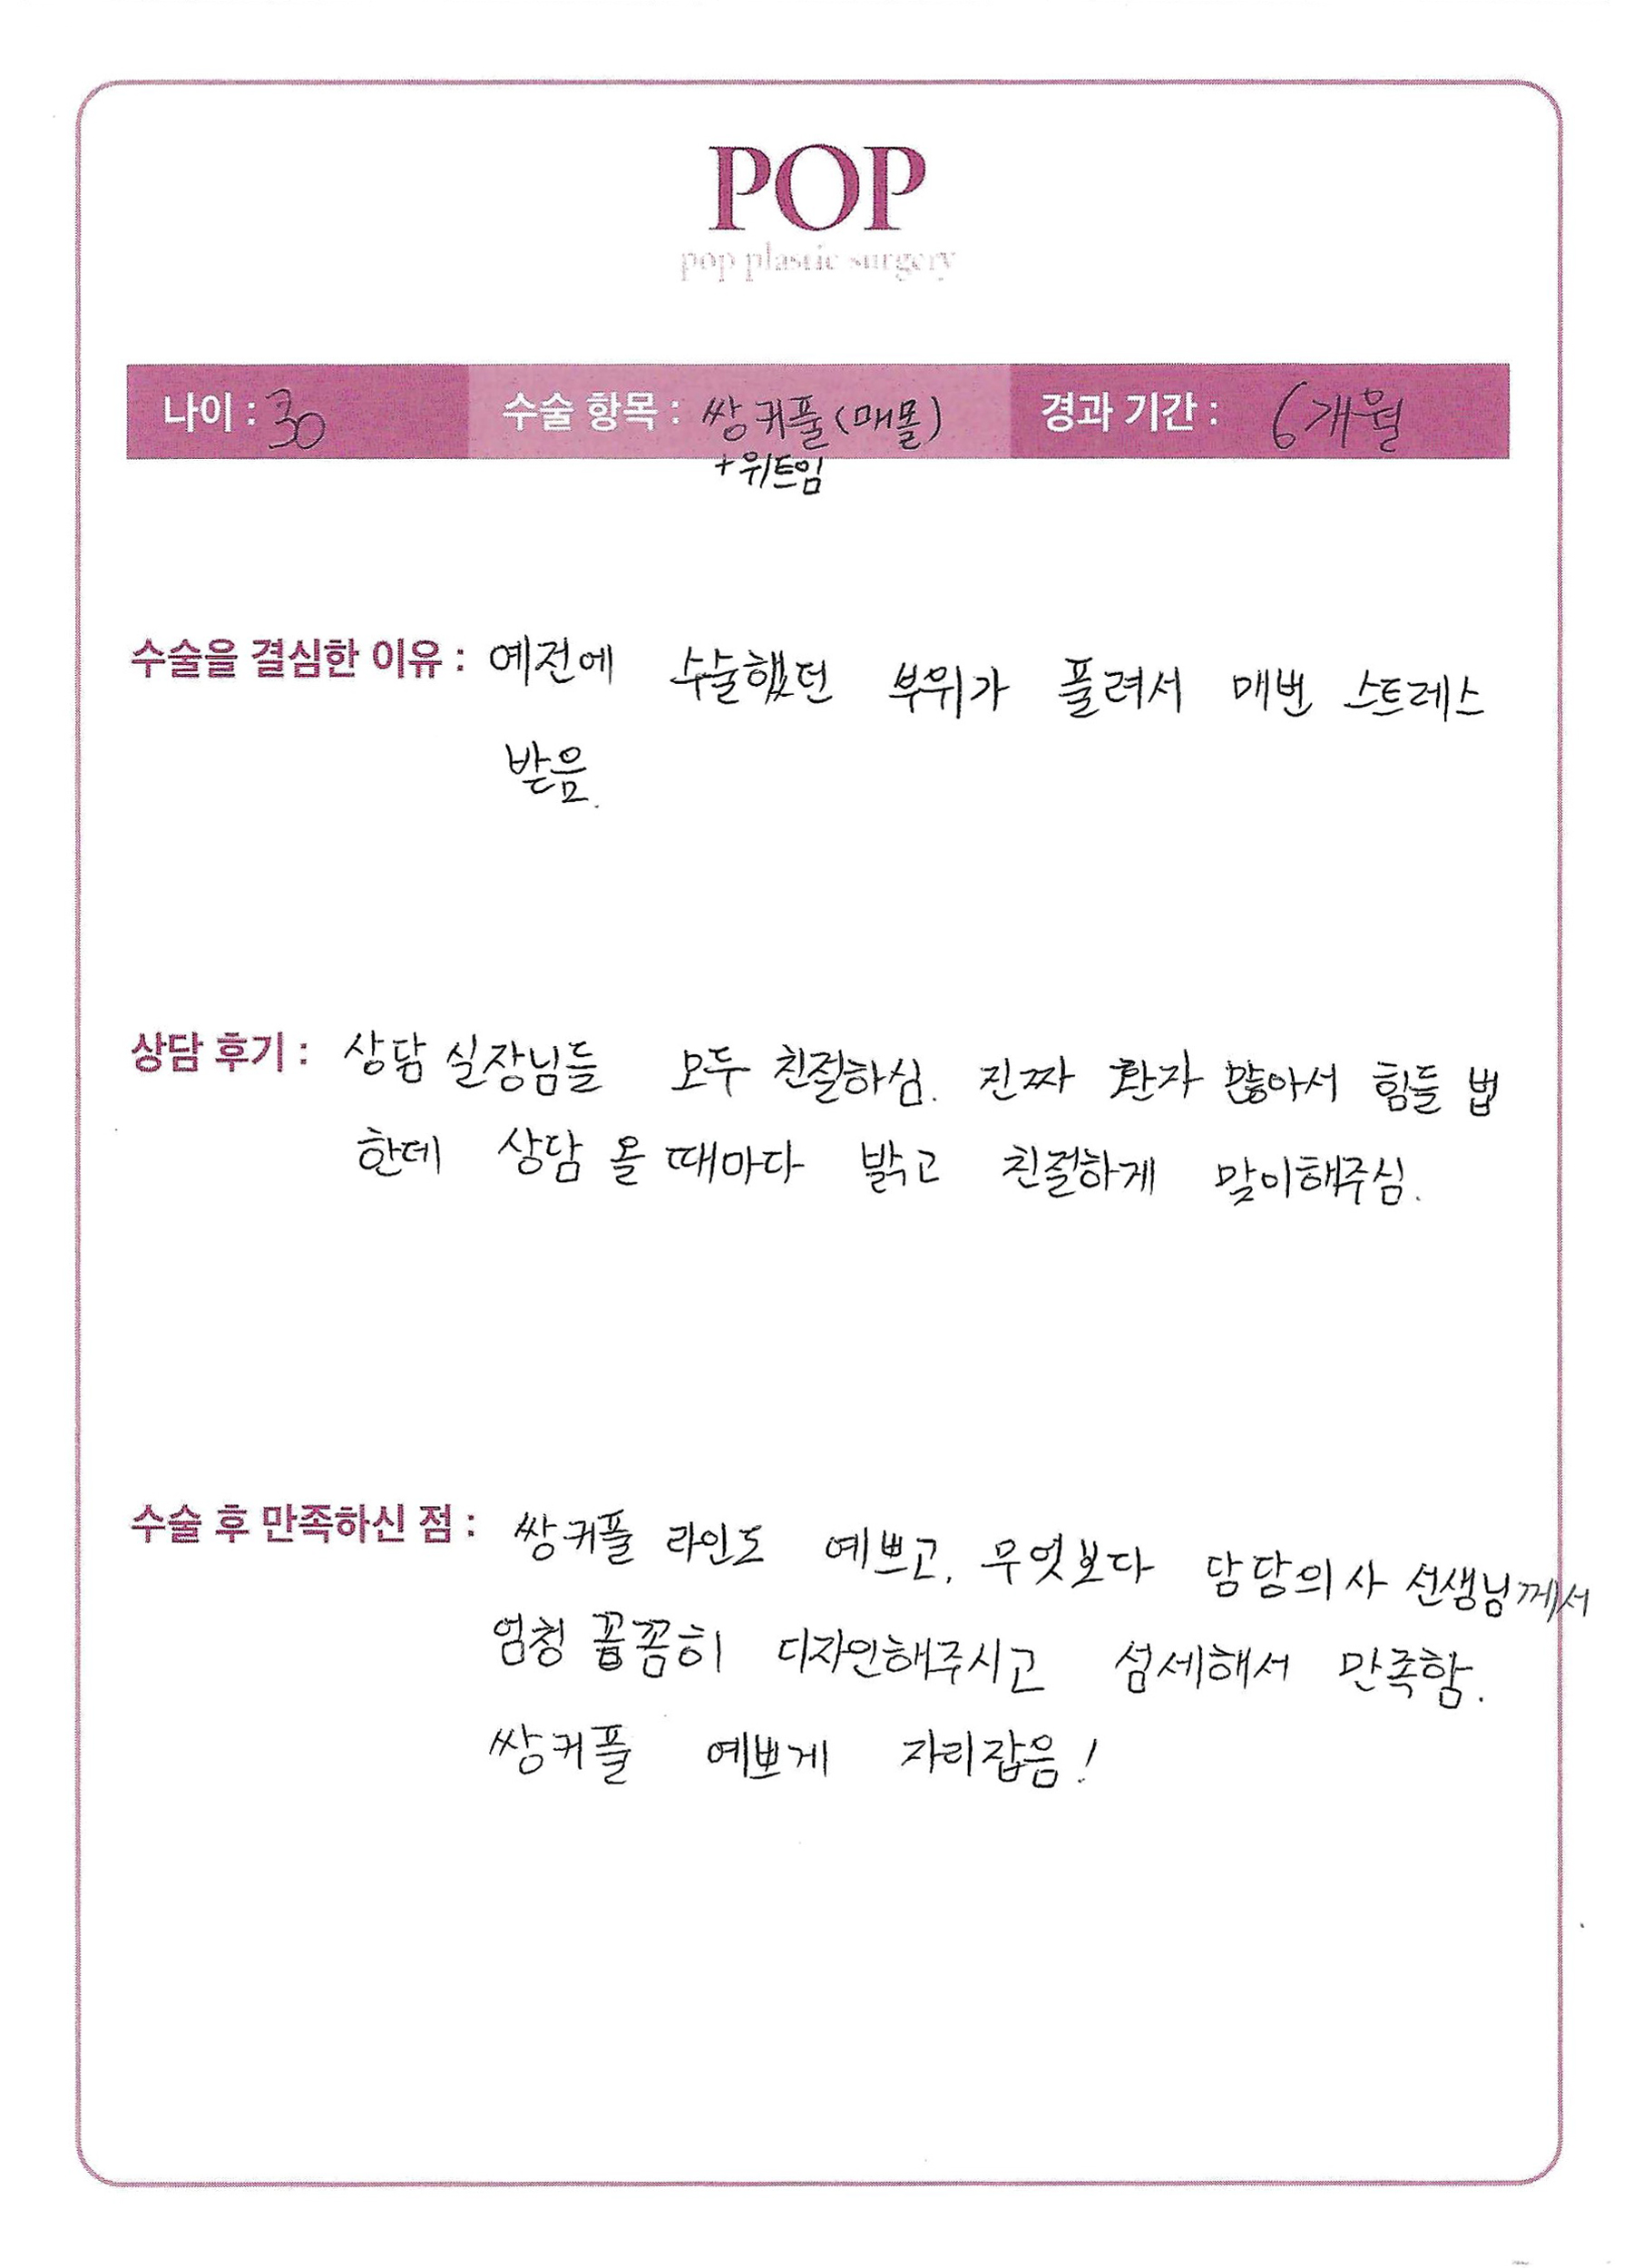 POP
pop plastic surgery
나이 : 30 수술 항목 : 쌍커풀(매몰) 경과 기간 : 6개월
+위트임
수술을 결심한 이유 : 예전에 수술했던 부위가 풀려서 매번 스트레스
받음.
상담 후기 : 상담 실장님들 모두 친절하심. 진짜 환자 많아서 힘들 법
한데 상담 올 때마다 밝고 친절하게 맞이해주심.
수술 후 만족하신 점 : 쌍커풀 라인도 예쁘고, 무엇보다 담당의사 선생님께서
엄청 꼼꼼히 디자인해주시고 섬세해서 만족함.
쌍커풀 예쁘게 자리잡음!